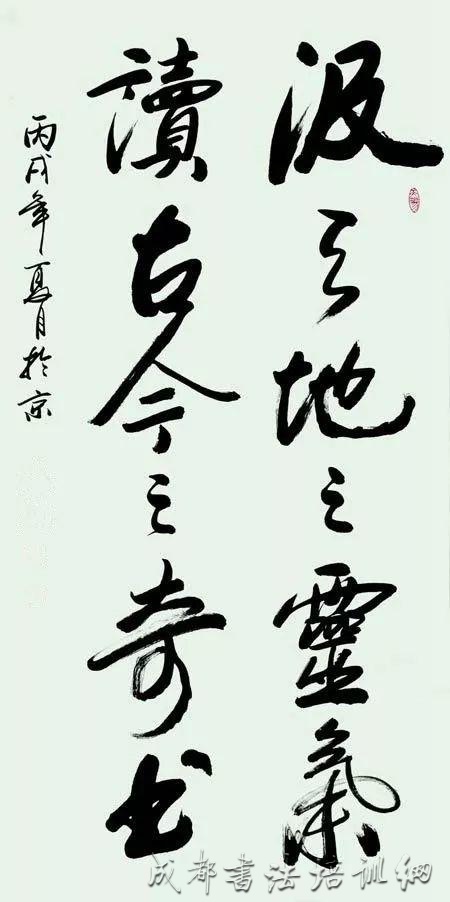 汲天地之靈氣
讀古今之奇书
丙戌年夏月於京
成都書法培训網